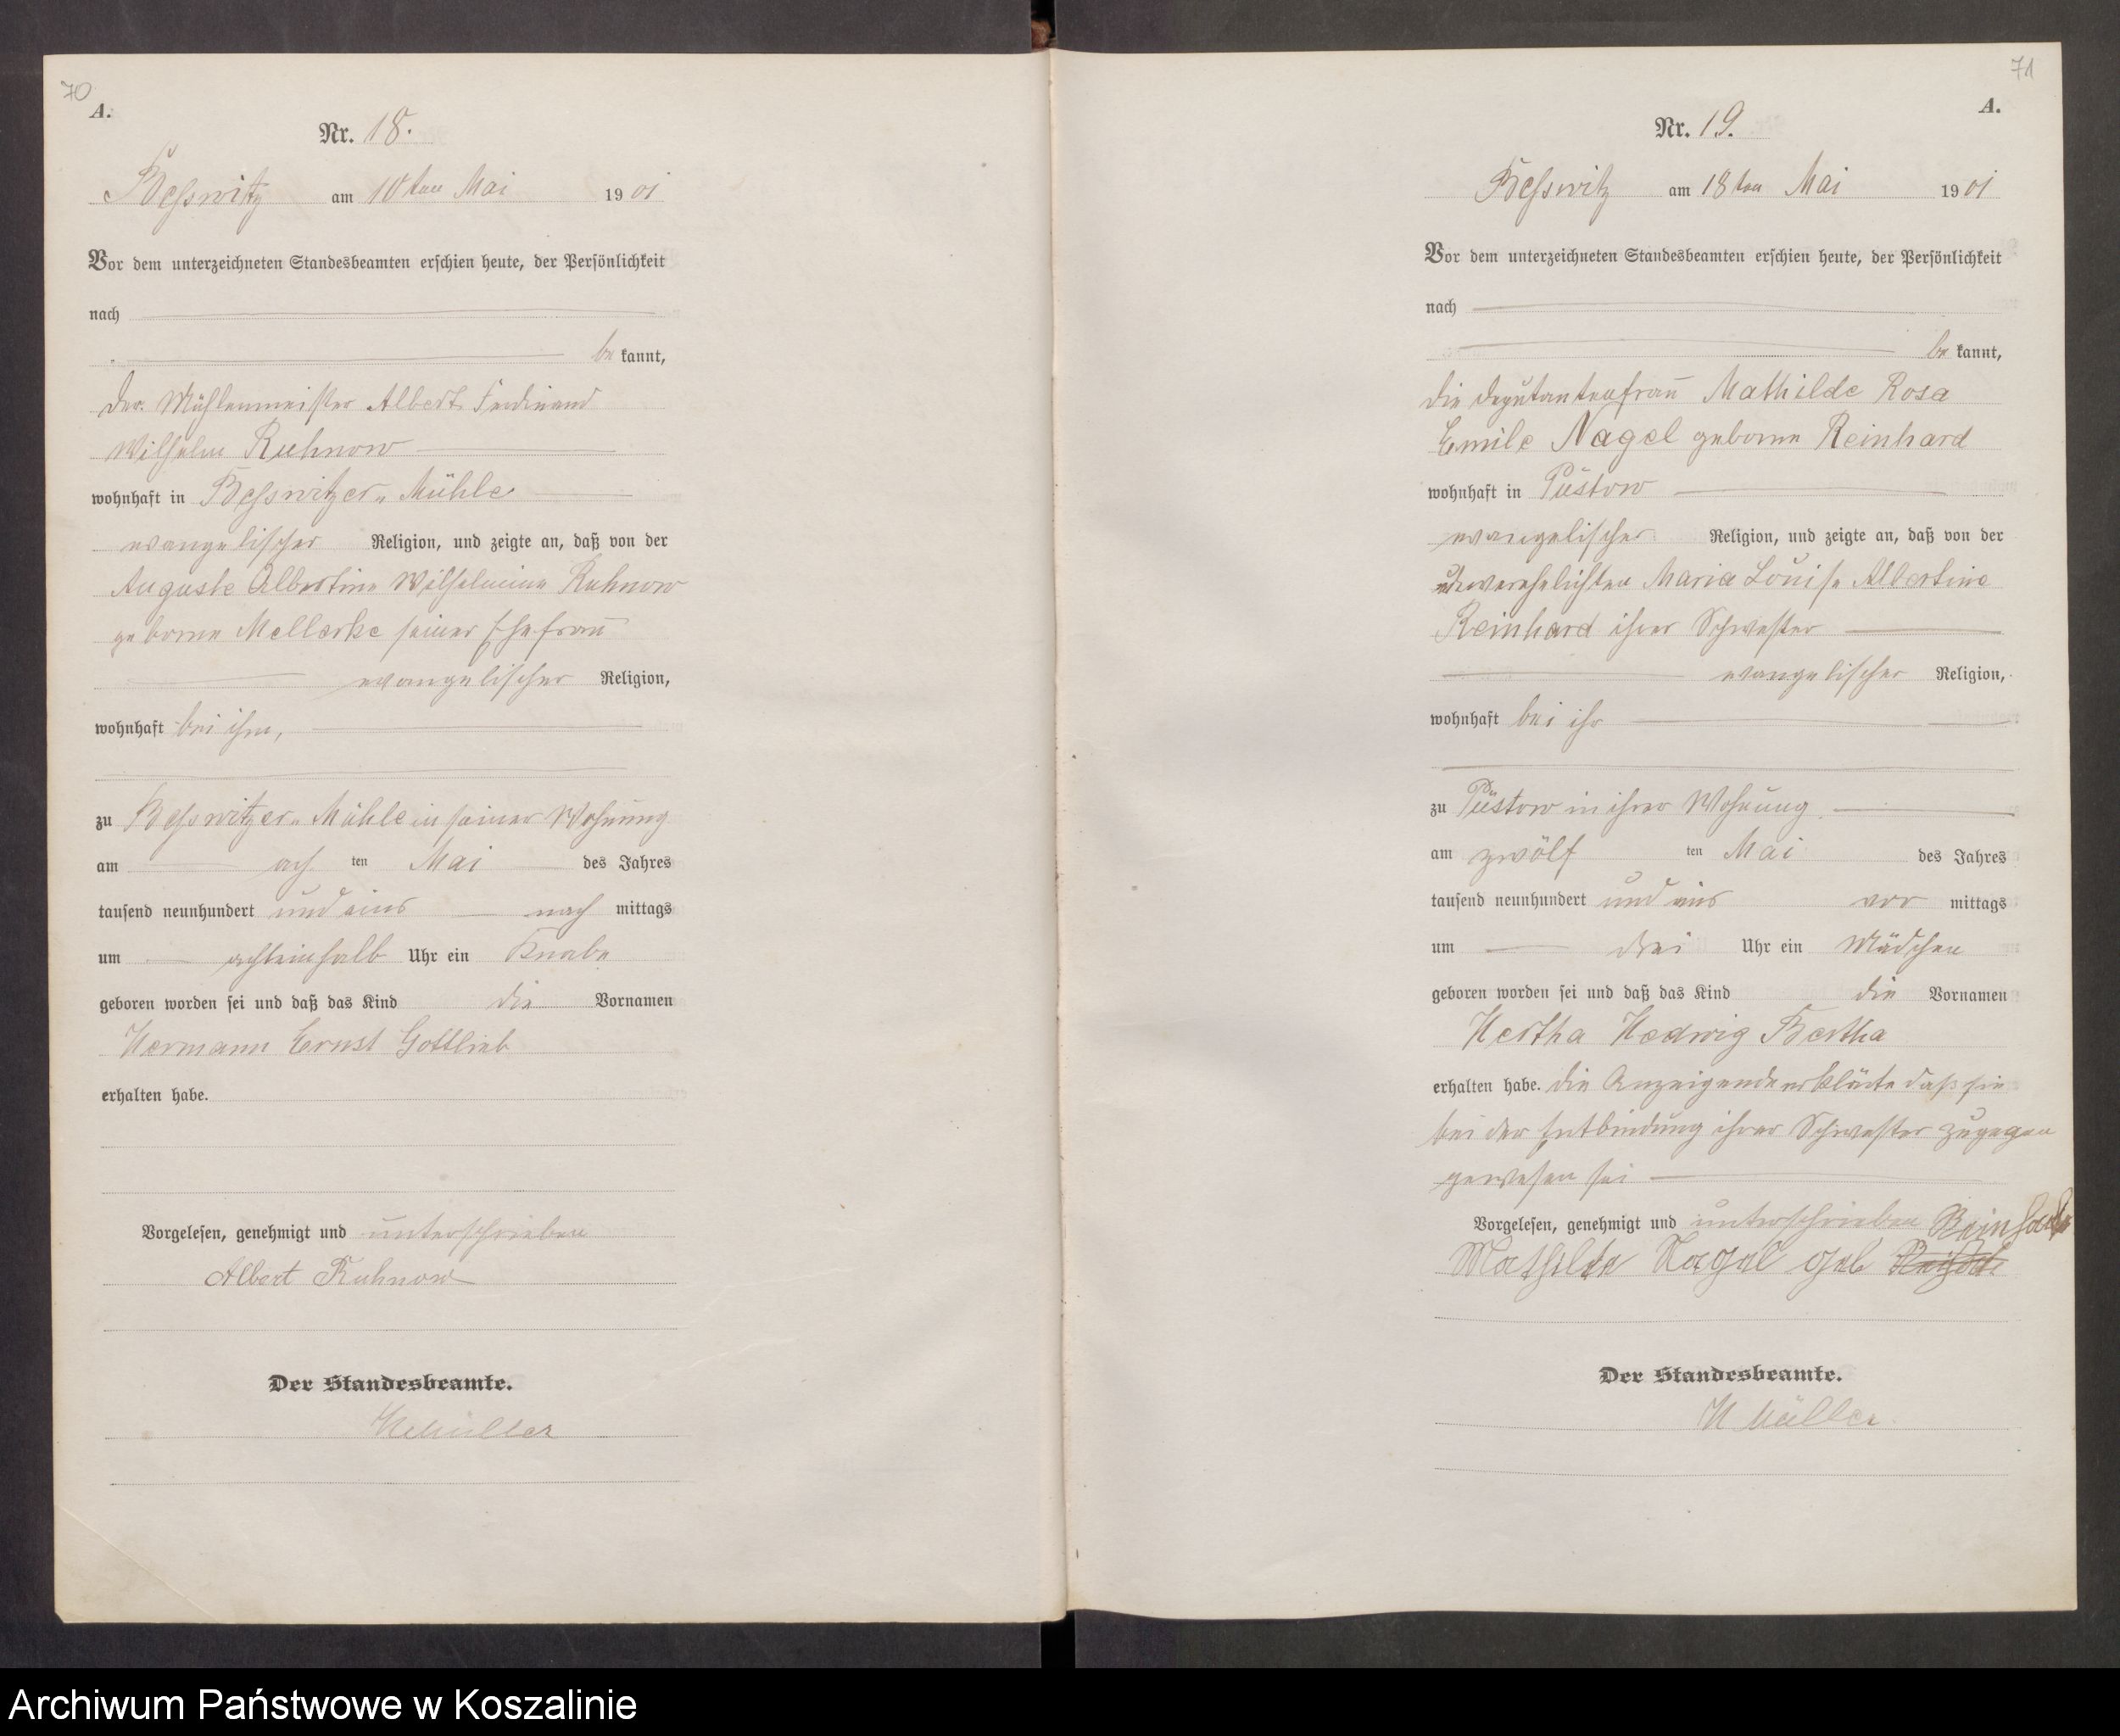 70
A.
Nr. 18.
Besswitz am 10ten Mai 1901
Vor dem unterzeichneten Standesbeamten erschien heute, der Persönlichkeit
nach
be kannt,
der Mühlenmeister Albert Ferdinand
Wilhelm Ruhnow
wohnhaft in Besswitzer-Mühle
evangelischer Religion, und zeigte an, daß von der
Auguste Albertine Wilhelmine Ruhnow
geborne Mellerke seiner Ehefrau
evangelischer Religion,
wohnhaft bei ihm,
zu Besswitzer-Mühle in seiner Wohnung
am ach ten Mai des Jahres
tausend neunhundert und eins nach mittags
um achteinhalb Uhr ein Knabe
geboren worden sei und daß das Kind die Vornamen
Hermann Ernst Gottlieb
erhalten habe.
Vorgelesen, genehmigt und unterschrieben
Albert Ruhnow
Der Standesbeamte.
HMüller
71
A.
Nr. 19.
Besswitz am 18ten Mai 1901
Vor dem unterzeichneten Standesbeamten erschien heute, der Persönlichkeit
nach
be kannt,
die Deputantenfrau Mathilde Rosa
Emile Nagel geborne Reinhard
wohnhaft in Püstow
evangelischer Religion, und zeigte an, daß von der
unverehelichten Maria Louise Albertine
Reinhard ihrer Schwester
evangelischer Religion,
wohnhaft bei ihr
zu Püstow in ihrer Wohnung
am zwölf ten Mai des Jahres
tausend neunhundert und eins vor mittags
um drei Uhr ein Mädchen
geboren worden sei und daß das Kind die Vornamen
Hertha Hedwig Bertha
erhalten habe. die Anzeigende erklärte daß sie
bei der Entbindung ihrer Schwester zugegen
gewesen sei
Vorgelesen, genehmigt und unterschrieben Reinhardt
Mathilde Nagel geb
Der Standesbeamte.
H Müller
Archiwum Państwowe w Koszalinie